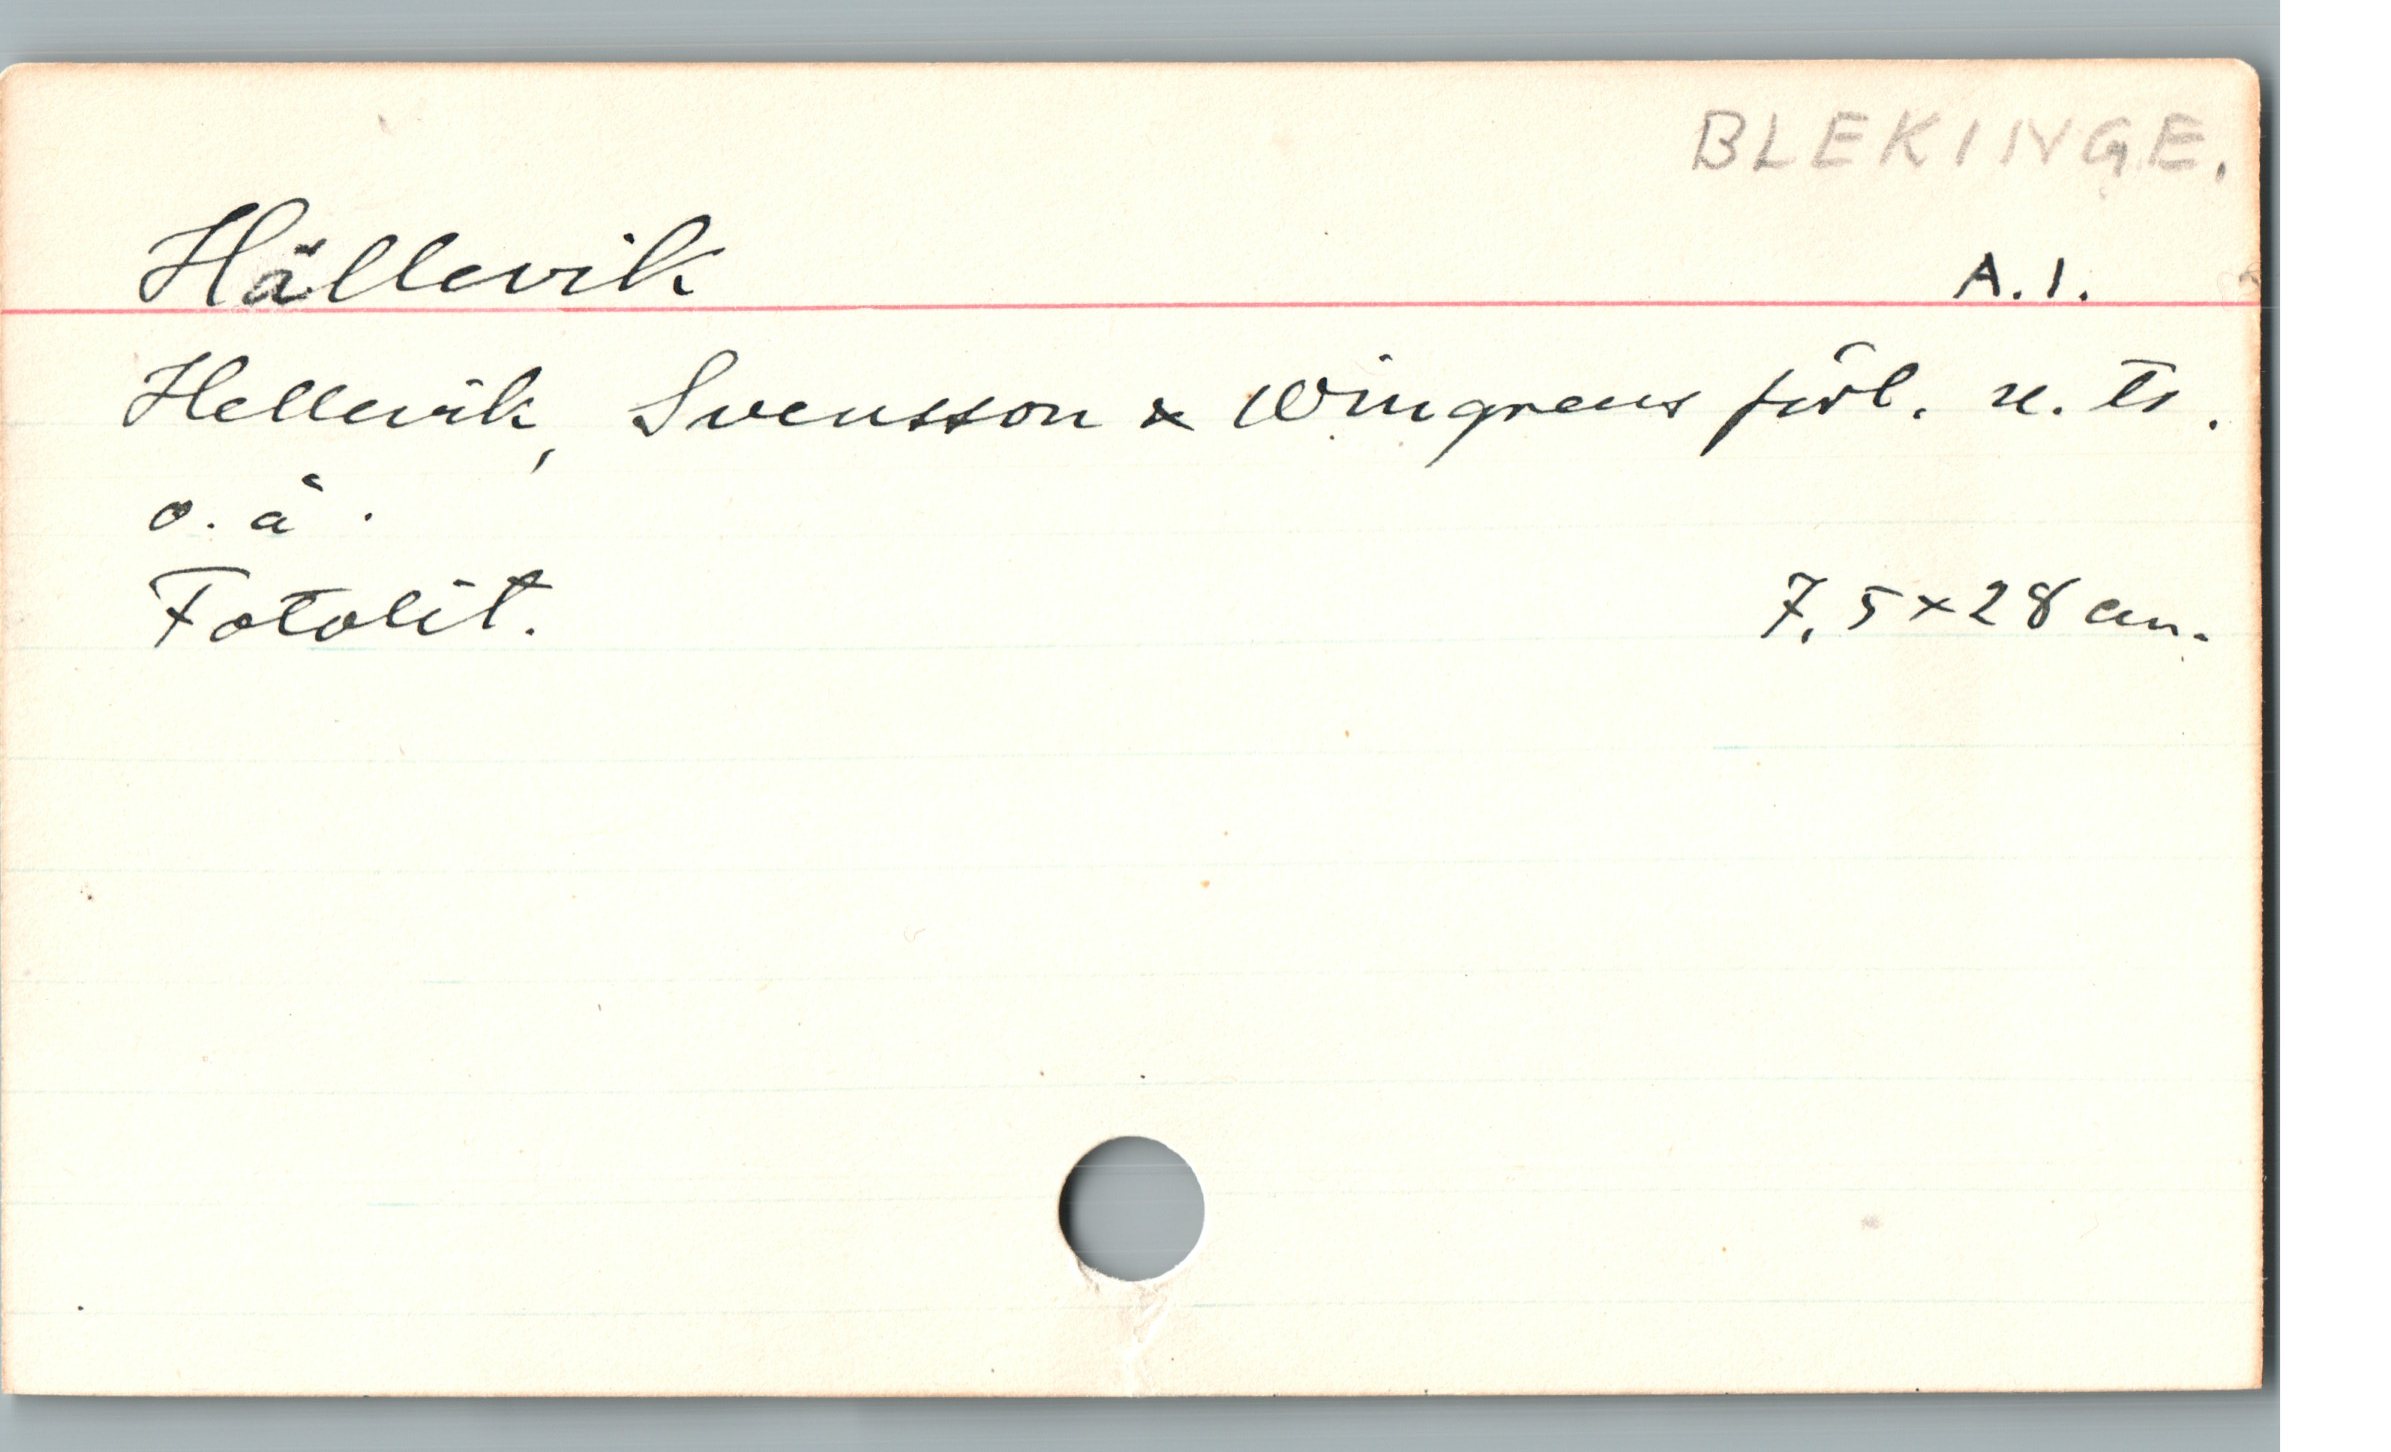 BLEKINGE.
Hällevik A.1.
Hellevik, Svensson & Wingrens förl. u. ts.
o. å.
Fotolit. 7,5×28 cm.